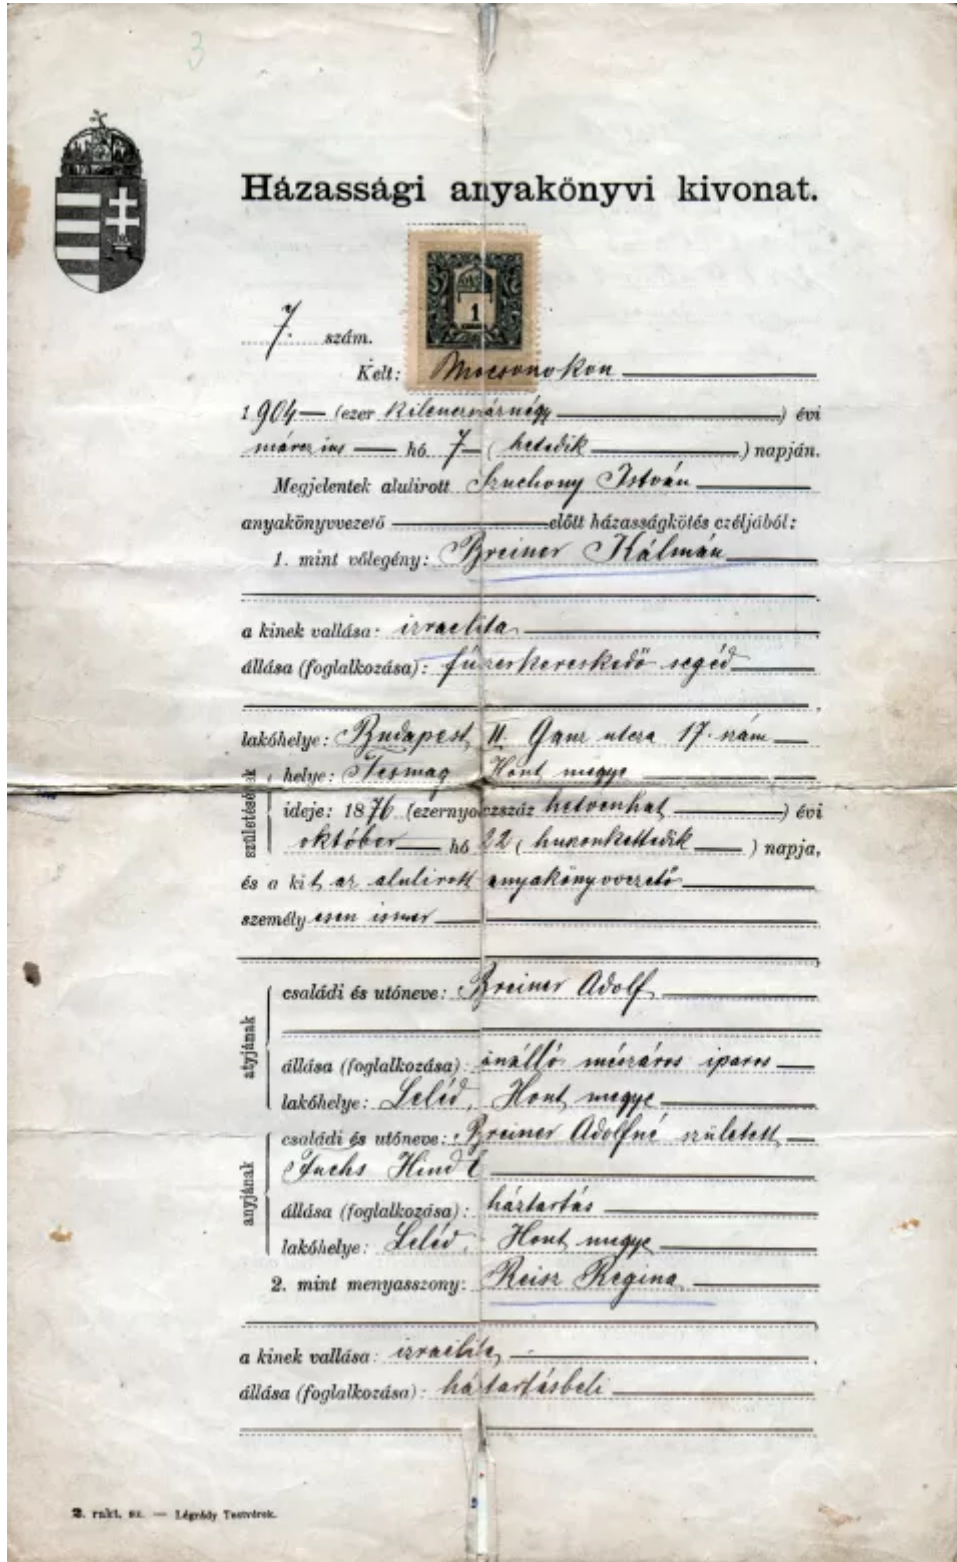 3
Házassági anyakönyvi kivonat.
1
7. szám.
Kelt: Mocsonokon
1904 — (ezer kilencszáznégy) évi
márczius hó 7 (hetedik) napján.
Megjelentek alulirott Szuchony István
anyakönyvvezető előtt házasságkötés czéljából:
1. mint vőlegény: Breiner Kálmán
a kinek vallása: izraelita
állása (foglalkozása): fűszerkereskedő segéd
lakóhelye: Budapest, II. Ganz utcza 17. szám
születésének
helye: Tesmag Hont megye
ideje: 1876 (ezernyolczszáz hetvenhat) évi
október hó 22 (huszonkettedik) napja,
és a kit az alulirott anyakönyvvezető
személyesen ismer
atyjának
családi és utóneve: Breiner Adolf
állása (foglalkozása): önálló mészáros iparos
lakóhelye: Leléd, Hont megye
anyjának
családi és utóneve: Breiner Adolfné született
Fuchs Hindl
állása (foglalkozása): háztartás
lakóhelye: Leléd, Hont megye
2. mint menyasszony: Reisz Regina
a kinek vallása: izraelita
állása (foglalkozása): háztartásbeli
2. rakt. sz. — Légrády Testvérek.